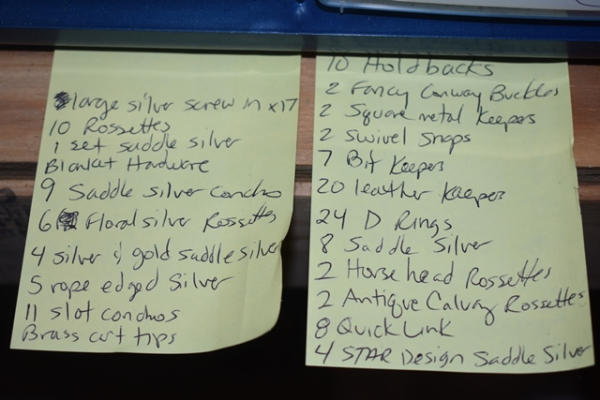 large silver screw in x17
10 Rossettes
1 set saddle silver
Blanket Hardware
9 Saddle silver conchos
6 Floral silver Rossettes
4 silver & gold saddle silver
5 rope edged Silver
11 slot conchos
Brass cart tips
10 Holdbacks
2 Fancy Conway Buckles
2 Square metal Keepers
2 Swivel Snaps
7 Bit Keepers
20 leather Keepers
24 D Rings
8 Saddle Silver
2 Horse head Rossettes
2 Antique Calvary Rossettes
8 Quick Link
4 STAR Design Saddle Silver